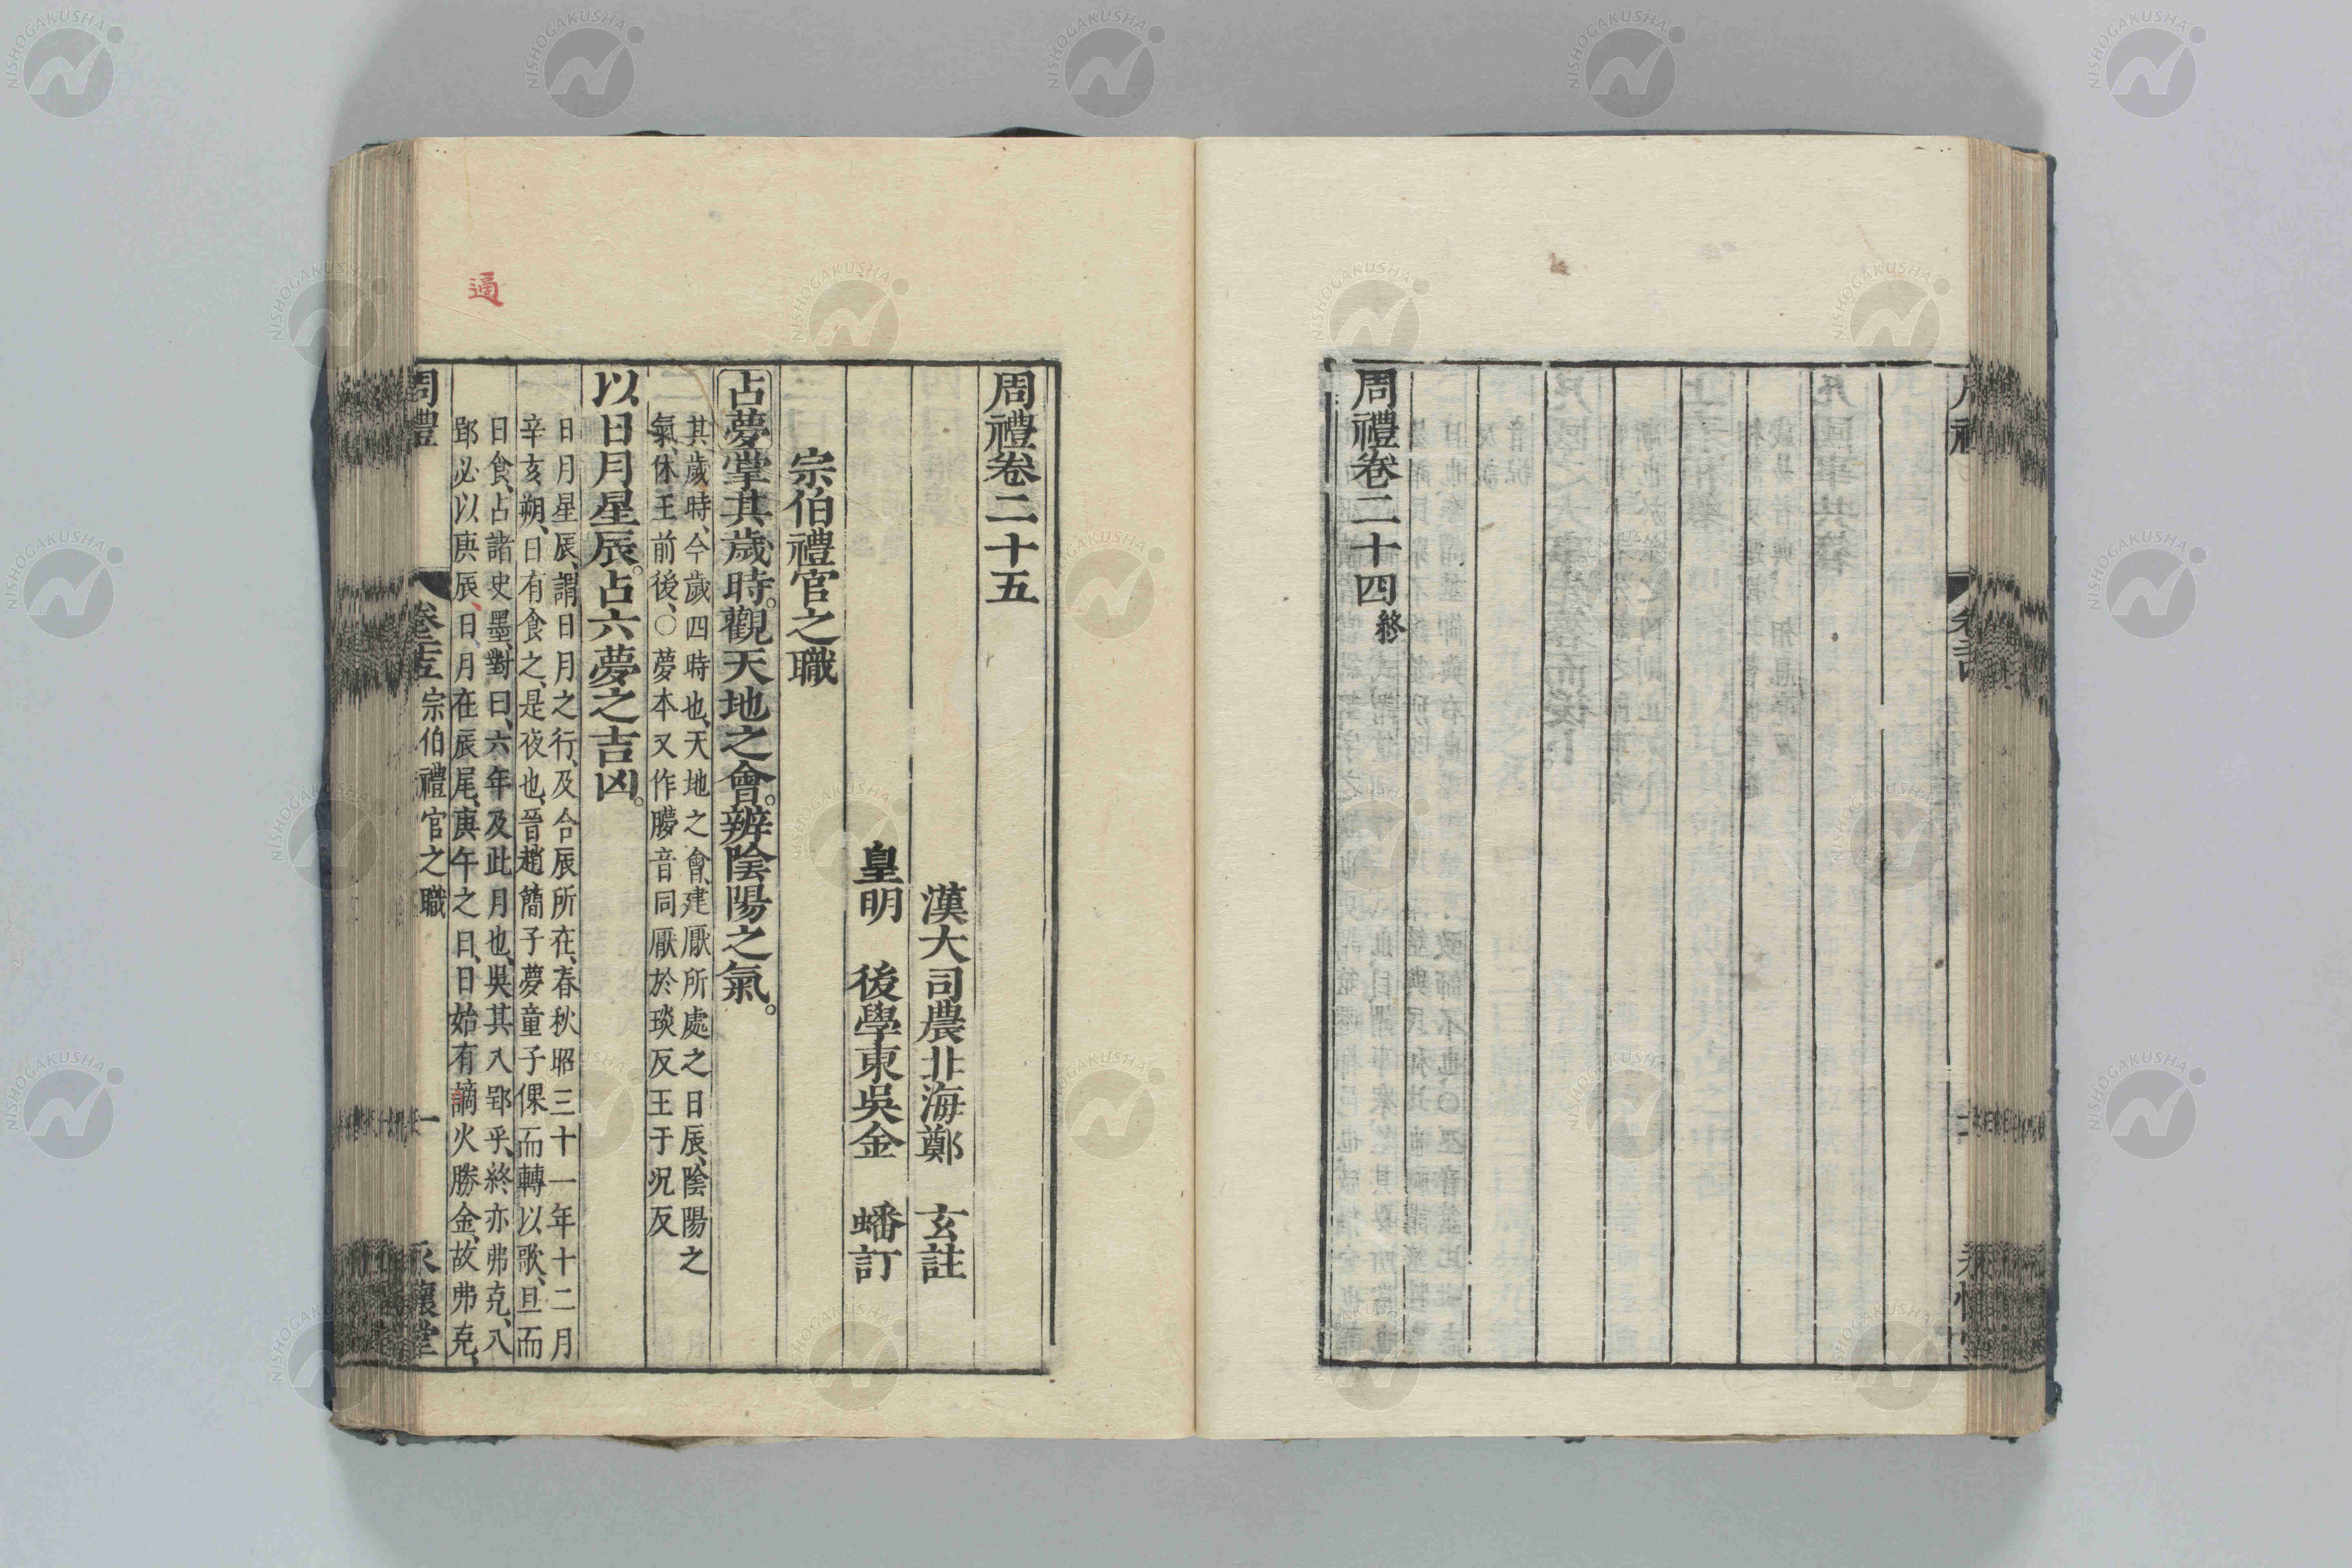 周禮卷二十四終
周禮卷二十五
漢大司農北海鄭　玄註
皇明　後學東吳金　蟠訂
宗伯禮官之職
占夢掌其歲時。觀天地之會。辨陰陽之氣。
其歲時、今歲四時也、天地之會、建厭所處之日辰、陰陽之
氣、休王前後、○夢本又作㝱音同厭於琰反王于況反
以日月星辰。占六夢之吉凶。
日月星辰、謂日月之行、及合辰所在、春秋昭三十一年十二月
辛亥朔、日有食之、是夜也、晉趙簡子夢童子倮而轉以歌、旦而
日食、占諸史墨、對曰、六年及此月也、吳其入郢乎、終亦弗克、入
郢必以庚辰、日月在辰尾、庚午之日、日始有謫火勝金、故弗克、
周禮　卷二十五　宗伯禮官之職　一　永懷堂
適
NISHOGAKUSHA